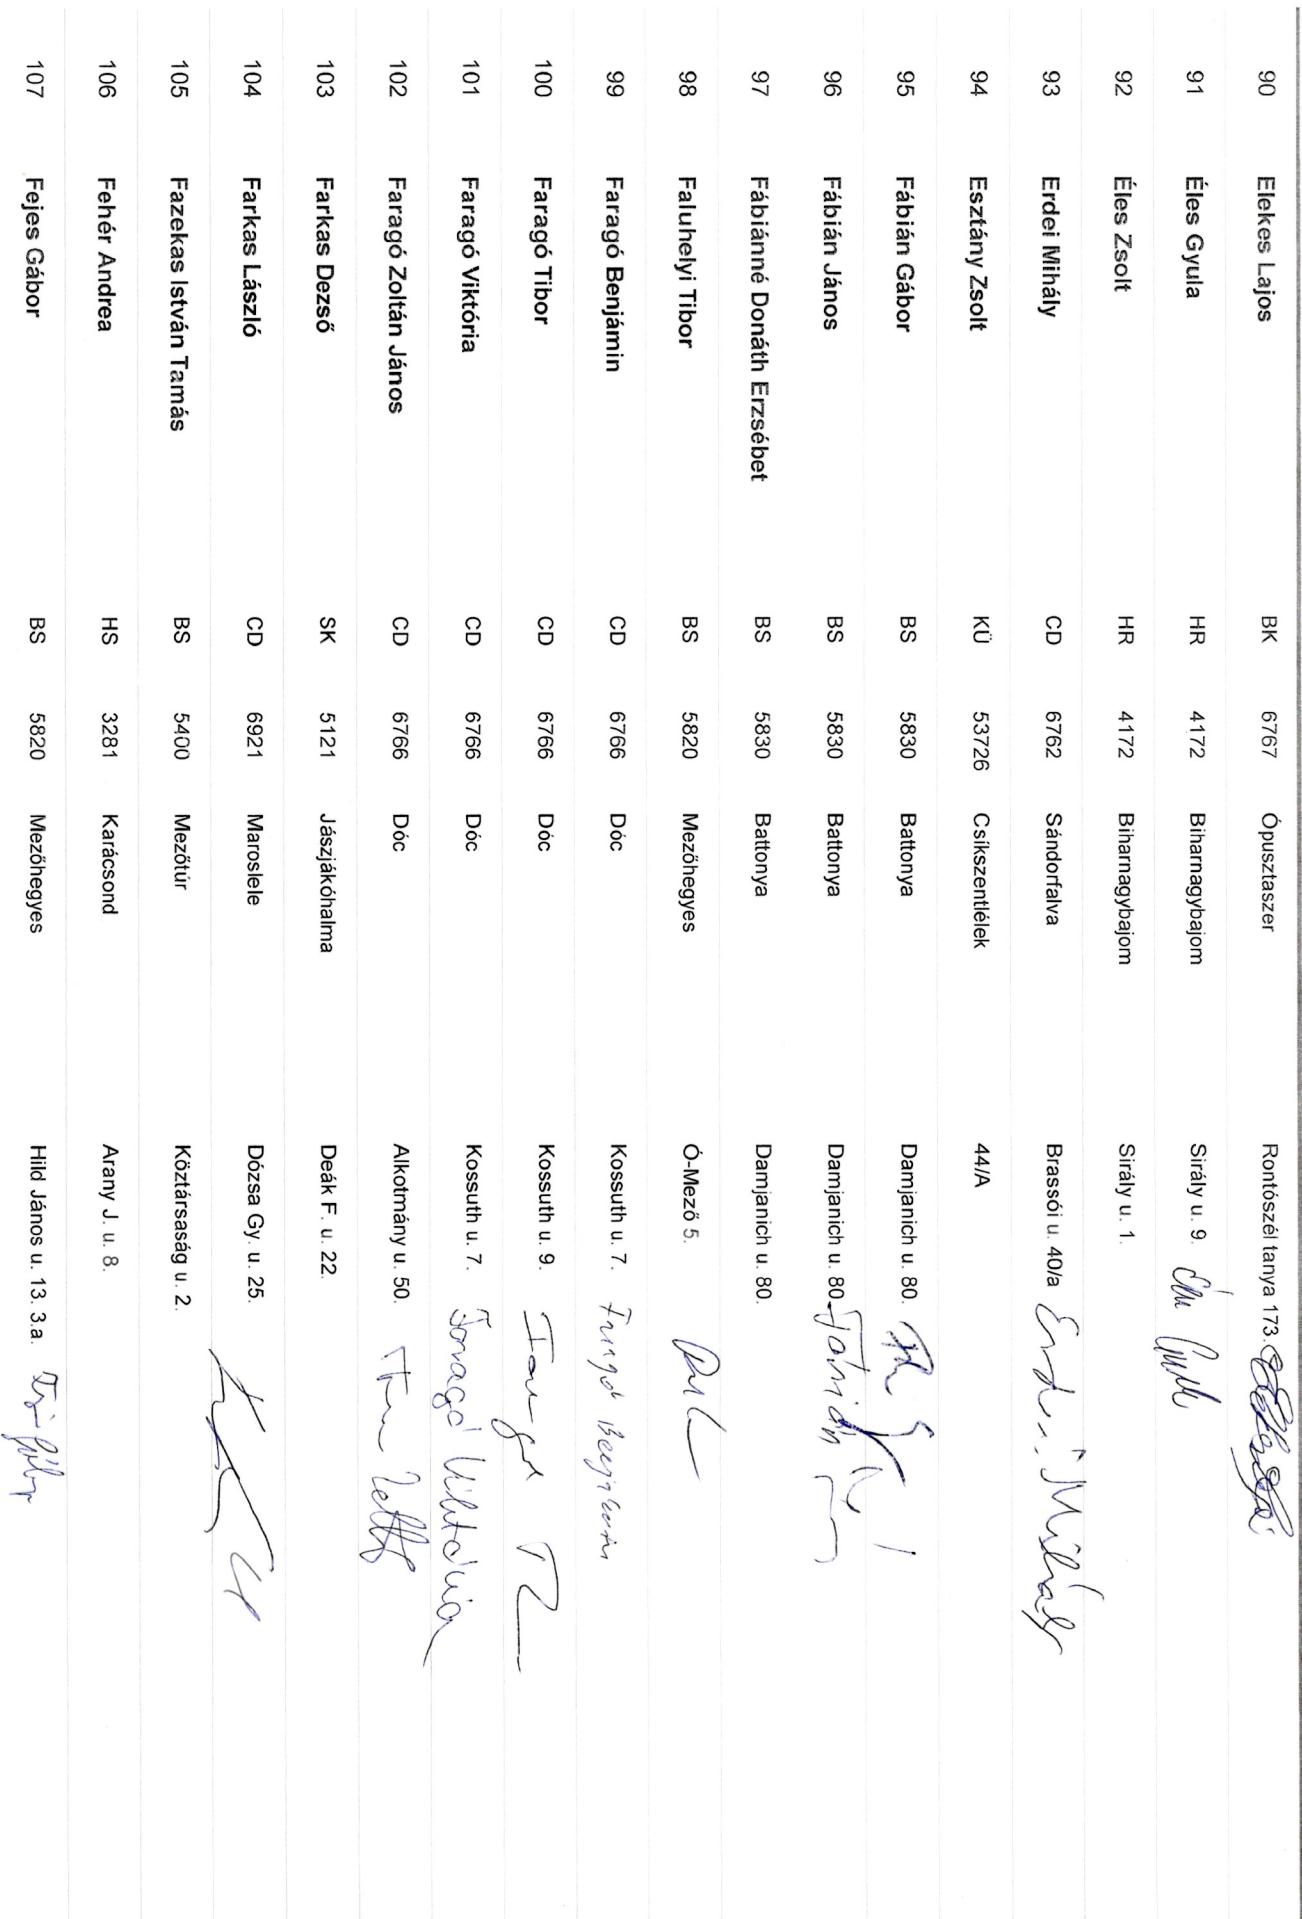 90 Elekes Lajos BK 6767 Ópusztaszer Rontószél tanya 173.
91 Éles Gyula HR 4172 Biharnagybajom Sirály u. 9.
92 Éles Zsolt HR 4172 Biharnagybajom Sirály u. 1.
93 Erdei Mihály CD 6762 Sándorfalva Brassói u. 40/a Erdei Mihály
94 Esztány Zsolt KÜ 53726 Csíkszentlélek 44/A
95 Fábián Gábor BS 5830 Battonya Damjanich u. 80.
96 Fábián János BS 5830 Battonya Damjanich u. 80. Fábián
97 Fábiánné Donáth Erzsébet BS 5830 Battonya Damjanich u. 80.
98 Faluhelyi Tibor BS 5820 Mezőhegyes Ó-Mező 5.
99 Faragó Benjámin CD 6766 Dóc Kossuth u. 7. Faragó Benjámin
100 Faragó Tibor CD 6766 Dóc Kossuth u. 9. Faragó
101 Faragó Viktória CD 6766 Dóc Kossuth u. 7. Faragó Viktória
102 Faragó Zoltán János CD 6766 Dóc Alkotmány u. 50.
103 Farkas Dezső SK 5121 Jászjákóhalma Deák F. u. 22.
104 Farkas László CD 6921 Maroslele Dózsa Gy. u. 25.
105 Fazekas István Tamás BS 5400 Mezőtúr Köztársaság u. 2.
106 Fehér Andrea HS 3281 Karácsond Arany J. u. 8.
107 Fejes Gábor BS 5820 Mezőhegyes Hild János u. 13. 3.a. Gábor